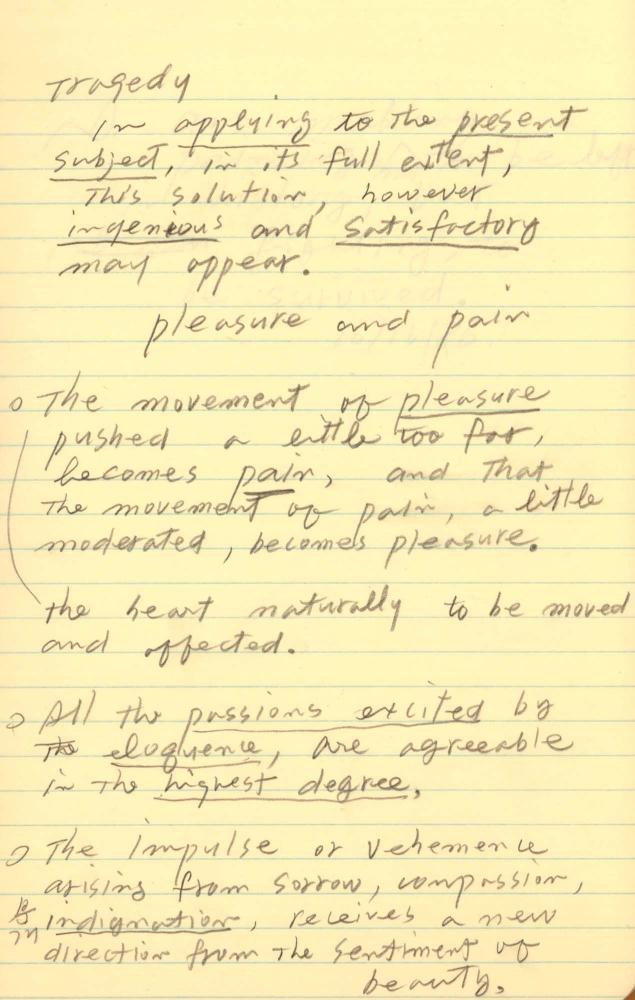 Tragedy
In applying to the present
subject, in its full extent,
This solution, however
ingenious and satisfactory
may appear.
pleasure and pain
o The movement of pleasure
pushed a little too far,
becomes pain, and that
The movement of pain, a little
moderated, becomes pleasure.
the heart naturally to be moved
and affected.
o All the passions excited by
the eloquence, are agreeable
in the highest degree.
o The impulse or vehemence
arising from sorrow, compassion,
indignation, receives a new
direction from the sentiment of
beauty.